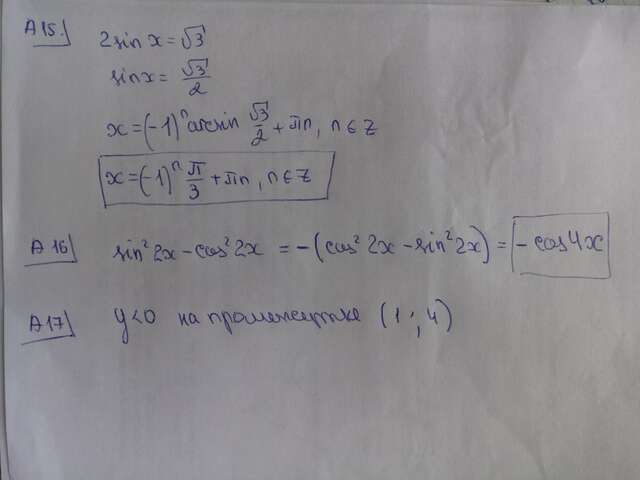 A15. 2sin x = √3
sin x = √3/2
x = (-1)ⁿ arcsin √3/2 + πn, n ∈ Z
x = (-1)ⁿ π/3 + πn, n ∈ Z
A16 sin² 2x - cos² 2x = -(cos² 2x - sin² 2x) = -cos 4x
A17 y<0 на промежутке (1; 4)